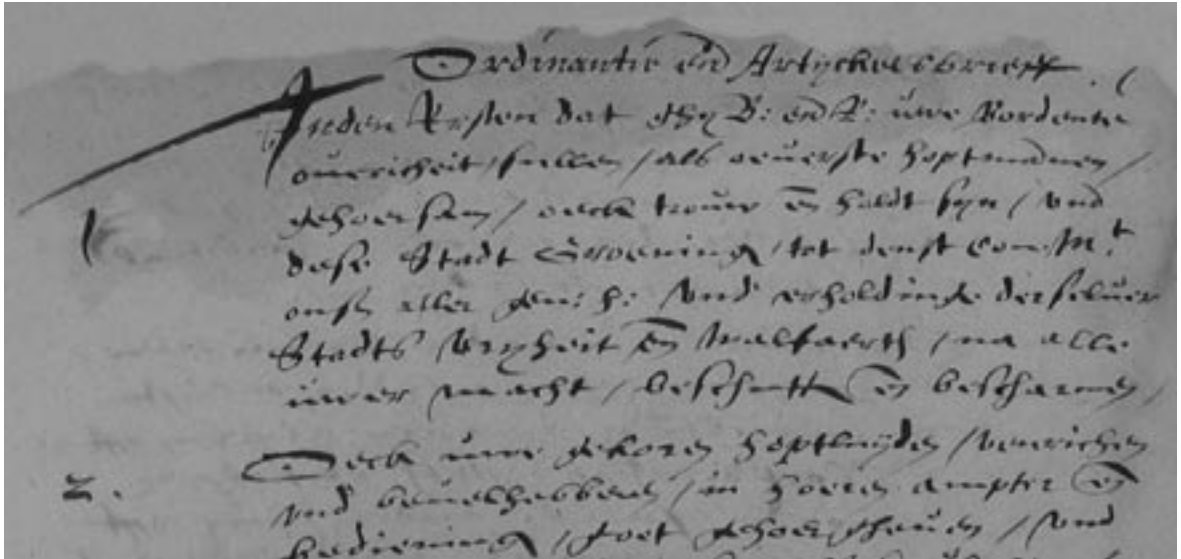 Ordinantie end Artyckelsbrieff.
Inden Ersten dat ghy B: end R: uwe Vordente
ouericheit, sullen, als oeuerste hoptmannen,
gehoersam, oeck trouw en holdt syn, vnd
dese Stadt Groening, tot denst Co: Mt.
ons aller gen: h: vnd erholdinge derseluer
Stadts vryheit en walfaerth, na alle
uwer macht, beschutten en bescharmen,
1
2.
Oeck uwe gekoren hoptluyden, venrichen
vnd beuelhebberen, in hoeren ampter en
bediening, goet gehoer gheuen, vnd